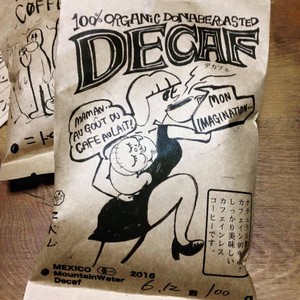 100% ORGANIC DONABE ROASTED
DECAF
デカフェ
MAMAN..
AU GOÛT DU
CAFE AU LAIT!
MON
IMAGINATION...
しっかり美味しい
カフェインレス
コーヒーです。
MEXICO
MountainWater
Decaf
2016
6.12
100
COFFE